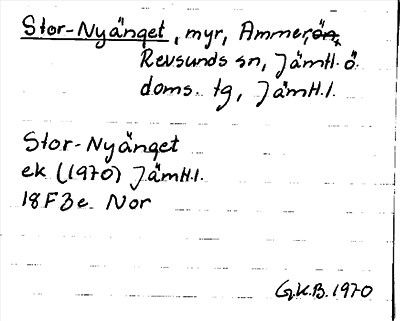 Stor-Nyänget, myr, Ammer,
Revsunds sn, Jämtl. ö.
doms. tg, Jämtl.l.
Stor-Nyänget
ek (1970) Jämtl.l.
18F3e Nor
G.K.B. 1970